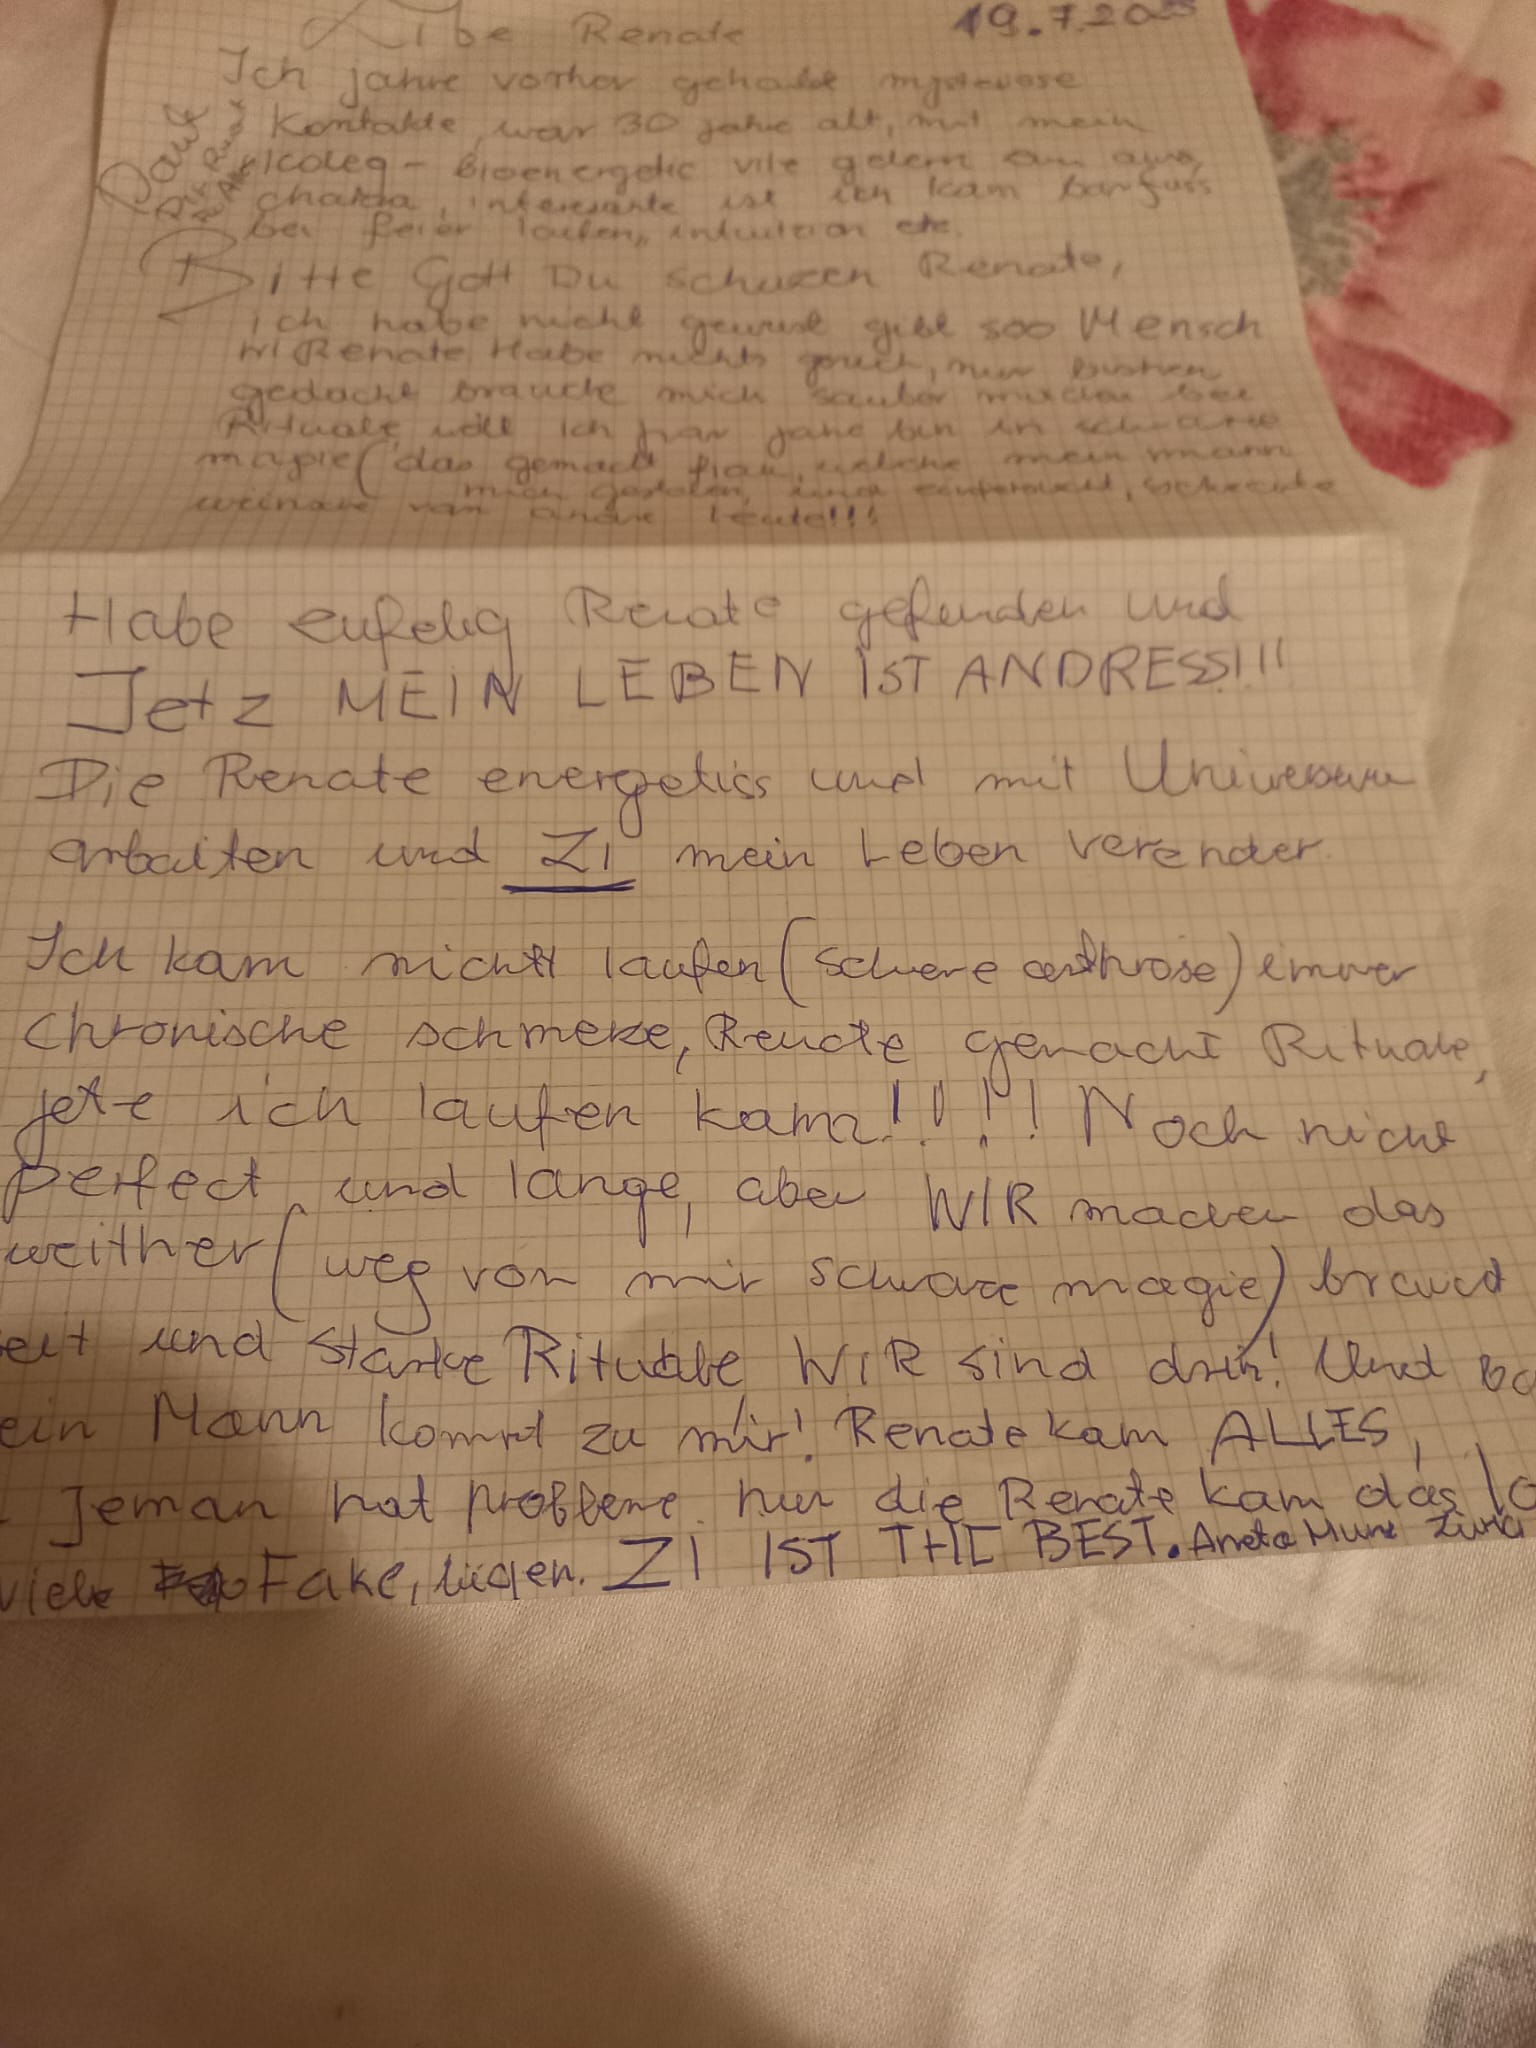 Libe Renate 19.7.20
Ich jahre vorher gehabt mysteriose
Kontakte, war 30 jahre alt, mit mein
Kolleg - Bioenergetic vile gelern
chakra, interesante ist ich kam barfuss
bei feier laufen, intuition etc.
Bitte Gott Du schuzen Renate,
ich habe nicht gewust gibt soo Mensch
wi Renate. Habe nichts gesuch, nur
gedacht brauche mich sauber machen bei
Rituale, will ich par jahe bin in schwarze
magie (das gemacht frau, welche mein mann
mich gestolen, und
von andre leute!!!
Habe zufelig Renate gefunden und
Jetz MEIN LEBEN IST ANDRESS!!!
Die Renate energetiss und mit Universum
arbaiten und ZI mein Leben verender.
Ich kam nicht laufen (schwere arthrose) immer
chronische schmerze, Renate gemacht Rituale,
jetze ich laufen kam!!!!! Noch nicht
perfect und lange, aber WIR machen das
weither (weg von mir schwarze magie) braucht
eit und starke Rituale, WIR sind drin! Und ba
ein Mann kommt zu mir! Renate kam ALLES,
Jeman hat probleme nur die Renate kam das lo
viele Fake, lügen. ZI IST THE BEST. Aneta